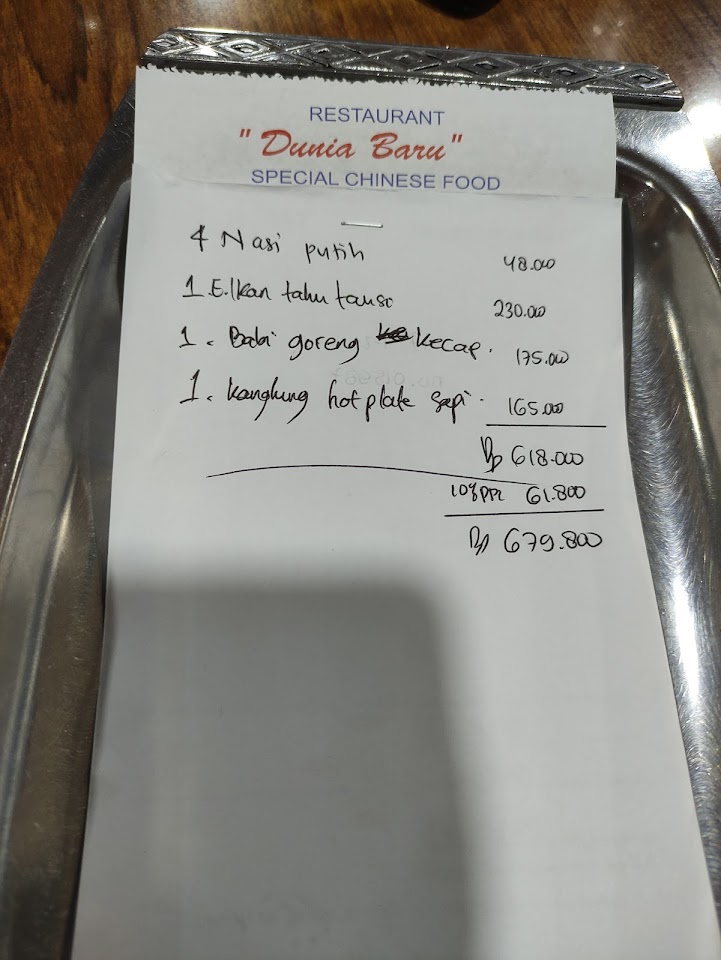 RESTAURANT
"Dunia Baru"
SPECIAL CHINESE FOOD
4 Nasi putih 48.000
1 E.Ikan tahu tauso 230.000
1. Babi goreng kecap. 175.000
1. kangkung hot plate sapi. 165.000
Rp 618.000
10% PPN 61.800
Rp 679.800